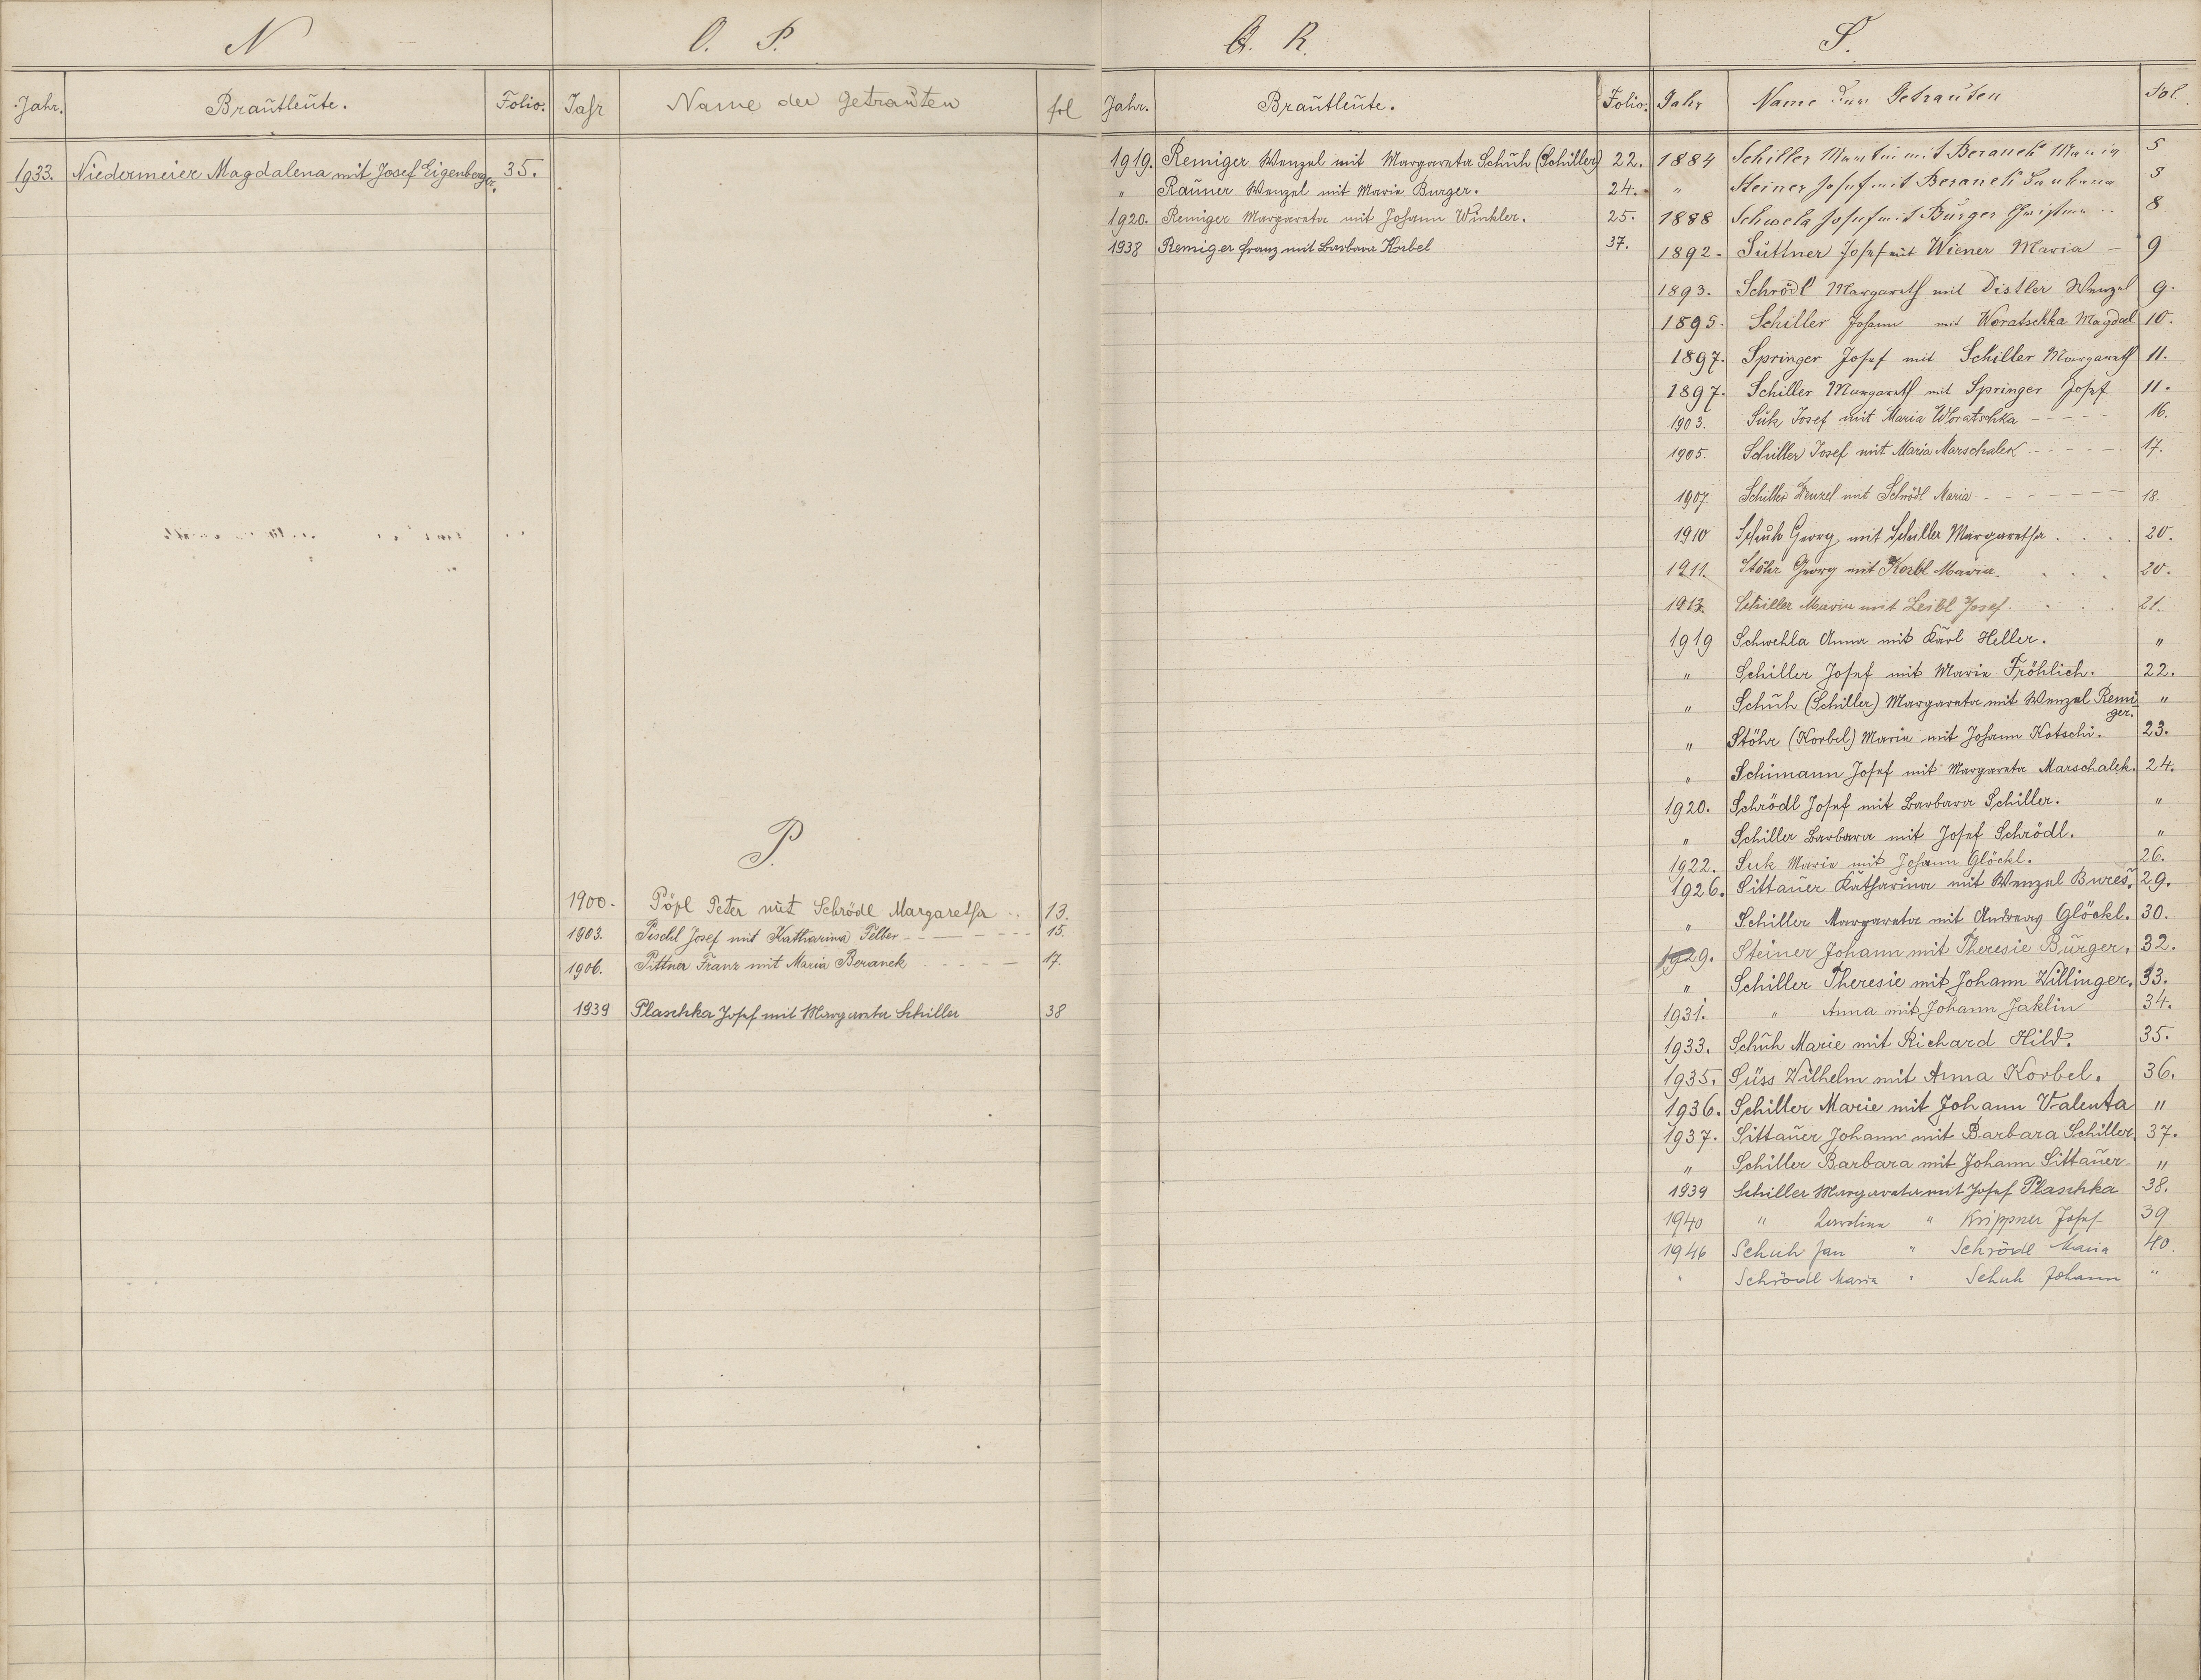 N
Jahr. Braütleüte. Folio.
1933. Niedermeier Magdalena mit Josef Eigenberger. 35.
O. P.
Jahr Name der Getraüten fol
P.
1900. Pöpl Peter mit Schrödl Margaretha .. 13.
1903. Pischl Josef mit Katharina Felber 15.
1906. Pittner Franz mit Maria Beranek 17.
1939 Plaschka Josef mit Margareta Schiller 38
Q. R.
Jahr. Braütleüte. Folio.
1919. Remiger Wenzel mit Margareta Schüh (Schiller) 22.
" Raüner Wenzel mit Marie Burger. 24.
1920. Remiger Margareta mit Johann Winkler. 25.
1938 Remiger Franz mit Barbara Korbel 37.
S.
Jahr Name der Getraüten Fol.
1884 Schiller Martin mit Beranek Maria 5
" Steiner Josef mit Beranek Barbara 5
1888 Schwela Josef mit Bürger Christina .. 8
1892. Süttner Josef mit Wiener Maria 9
1893. Schrödl Margareth mit Distler Wenzel 9.
1895. Schiller Johann mit Woratschka Magdal 10.
1897. Springer Josef mit Schiller Margareth 11.
1897. Schiller Margareth mit Springer Josef 11.
1903. Sük Josef mit Maria Woratschka 16.
1905. Schiller Josef mit Maria Marschalek 17.
1907. Schiller Wenzel mit Schrödl Maria 18.
1910 Schuh Georg mit Schiller Margaretha . . . . 20.
1911. Stöhr Georg mit Korbl Maria. . . . 20.
1913. Schiller Maria mit Leibl Josef. . . . 21.
1919 Schwehla Anna mit Karl Heller. "
" Schiller Josef mit Marie Fröhlich. 22.
" Schüh (Schiller) Margareta mit Wenzel Remiger. "
" Stöhr (Korbel) Marie mit Johann Kotschi. 23.
" Schimann Josef mit Margareta Marschalek. 24.
1920. Schrödl Josef mit Barbara Schiller. "
" Schiller Barbara mit Josef Schrödl. "
1922. Suk Marie mit Johann Glöckl. 26.
1926. Sittaüer Katharina mit Wenzel Bureš. 29.
" Schiller Margareta mit Andreas Glöckl. 30.
1929. Steiner Johann mit Theresie Bürger. 32.
" Schiller Theresie mit Johann Willinger. 33.
1931. " Anna mit Johann Jaklin 34.
1933. Schüh Marie mit Richard Hild. 35.
1935. Süss Wilhelm mit Anna Korbel. 36.
1936. Schiller Marie mit Johann Valenta "
1937. Sittaüer Johann mit Barbara Schiller. 37.
" Schiller Barbara mit Johann Sittaüer "
1939 Schiller Margareta mit Josef Plaschka 38.
1940 " Karolina " Krippner Josef 39
1946 Schuh Jan " Schrödl Maria 40.
" Schrödl Maria " Schuh Johann "